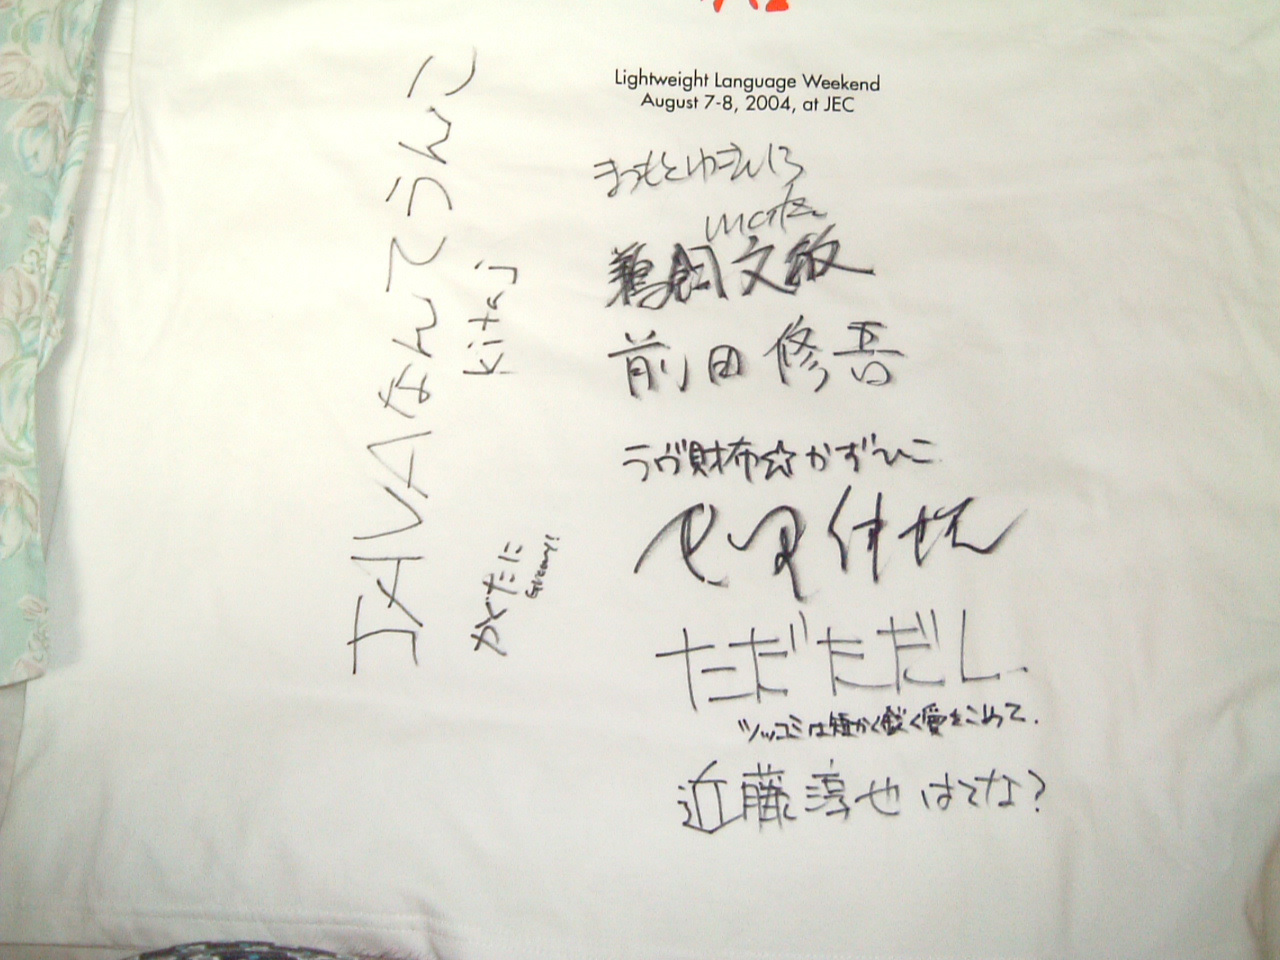 Lightweight Language Weekend
August 7-8, 2004, at JEC
まつもとゆきひろ
matz
鵜飼文敏
前田修吾
ラヴ財布☆かずひこ
ただただし
ツッコミは短かく鋭く愛をこめて.
近藤淳也 はてな?
JAVAなんてうんこ
kitaj
かくたに